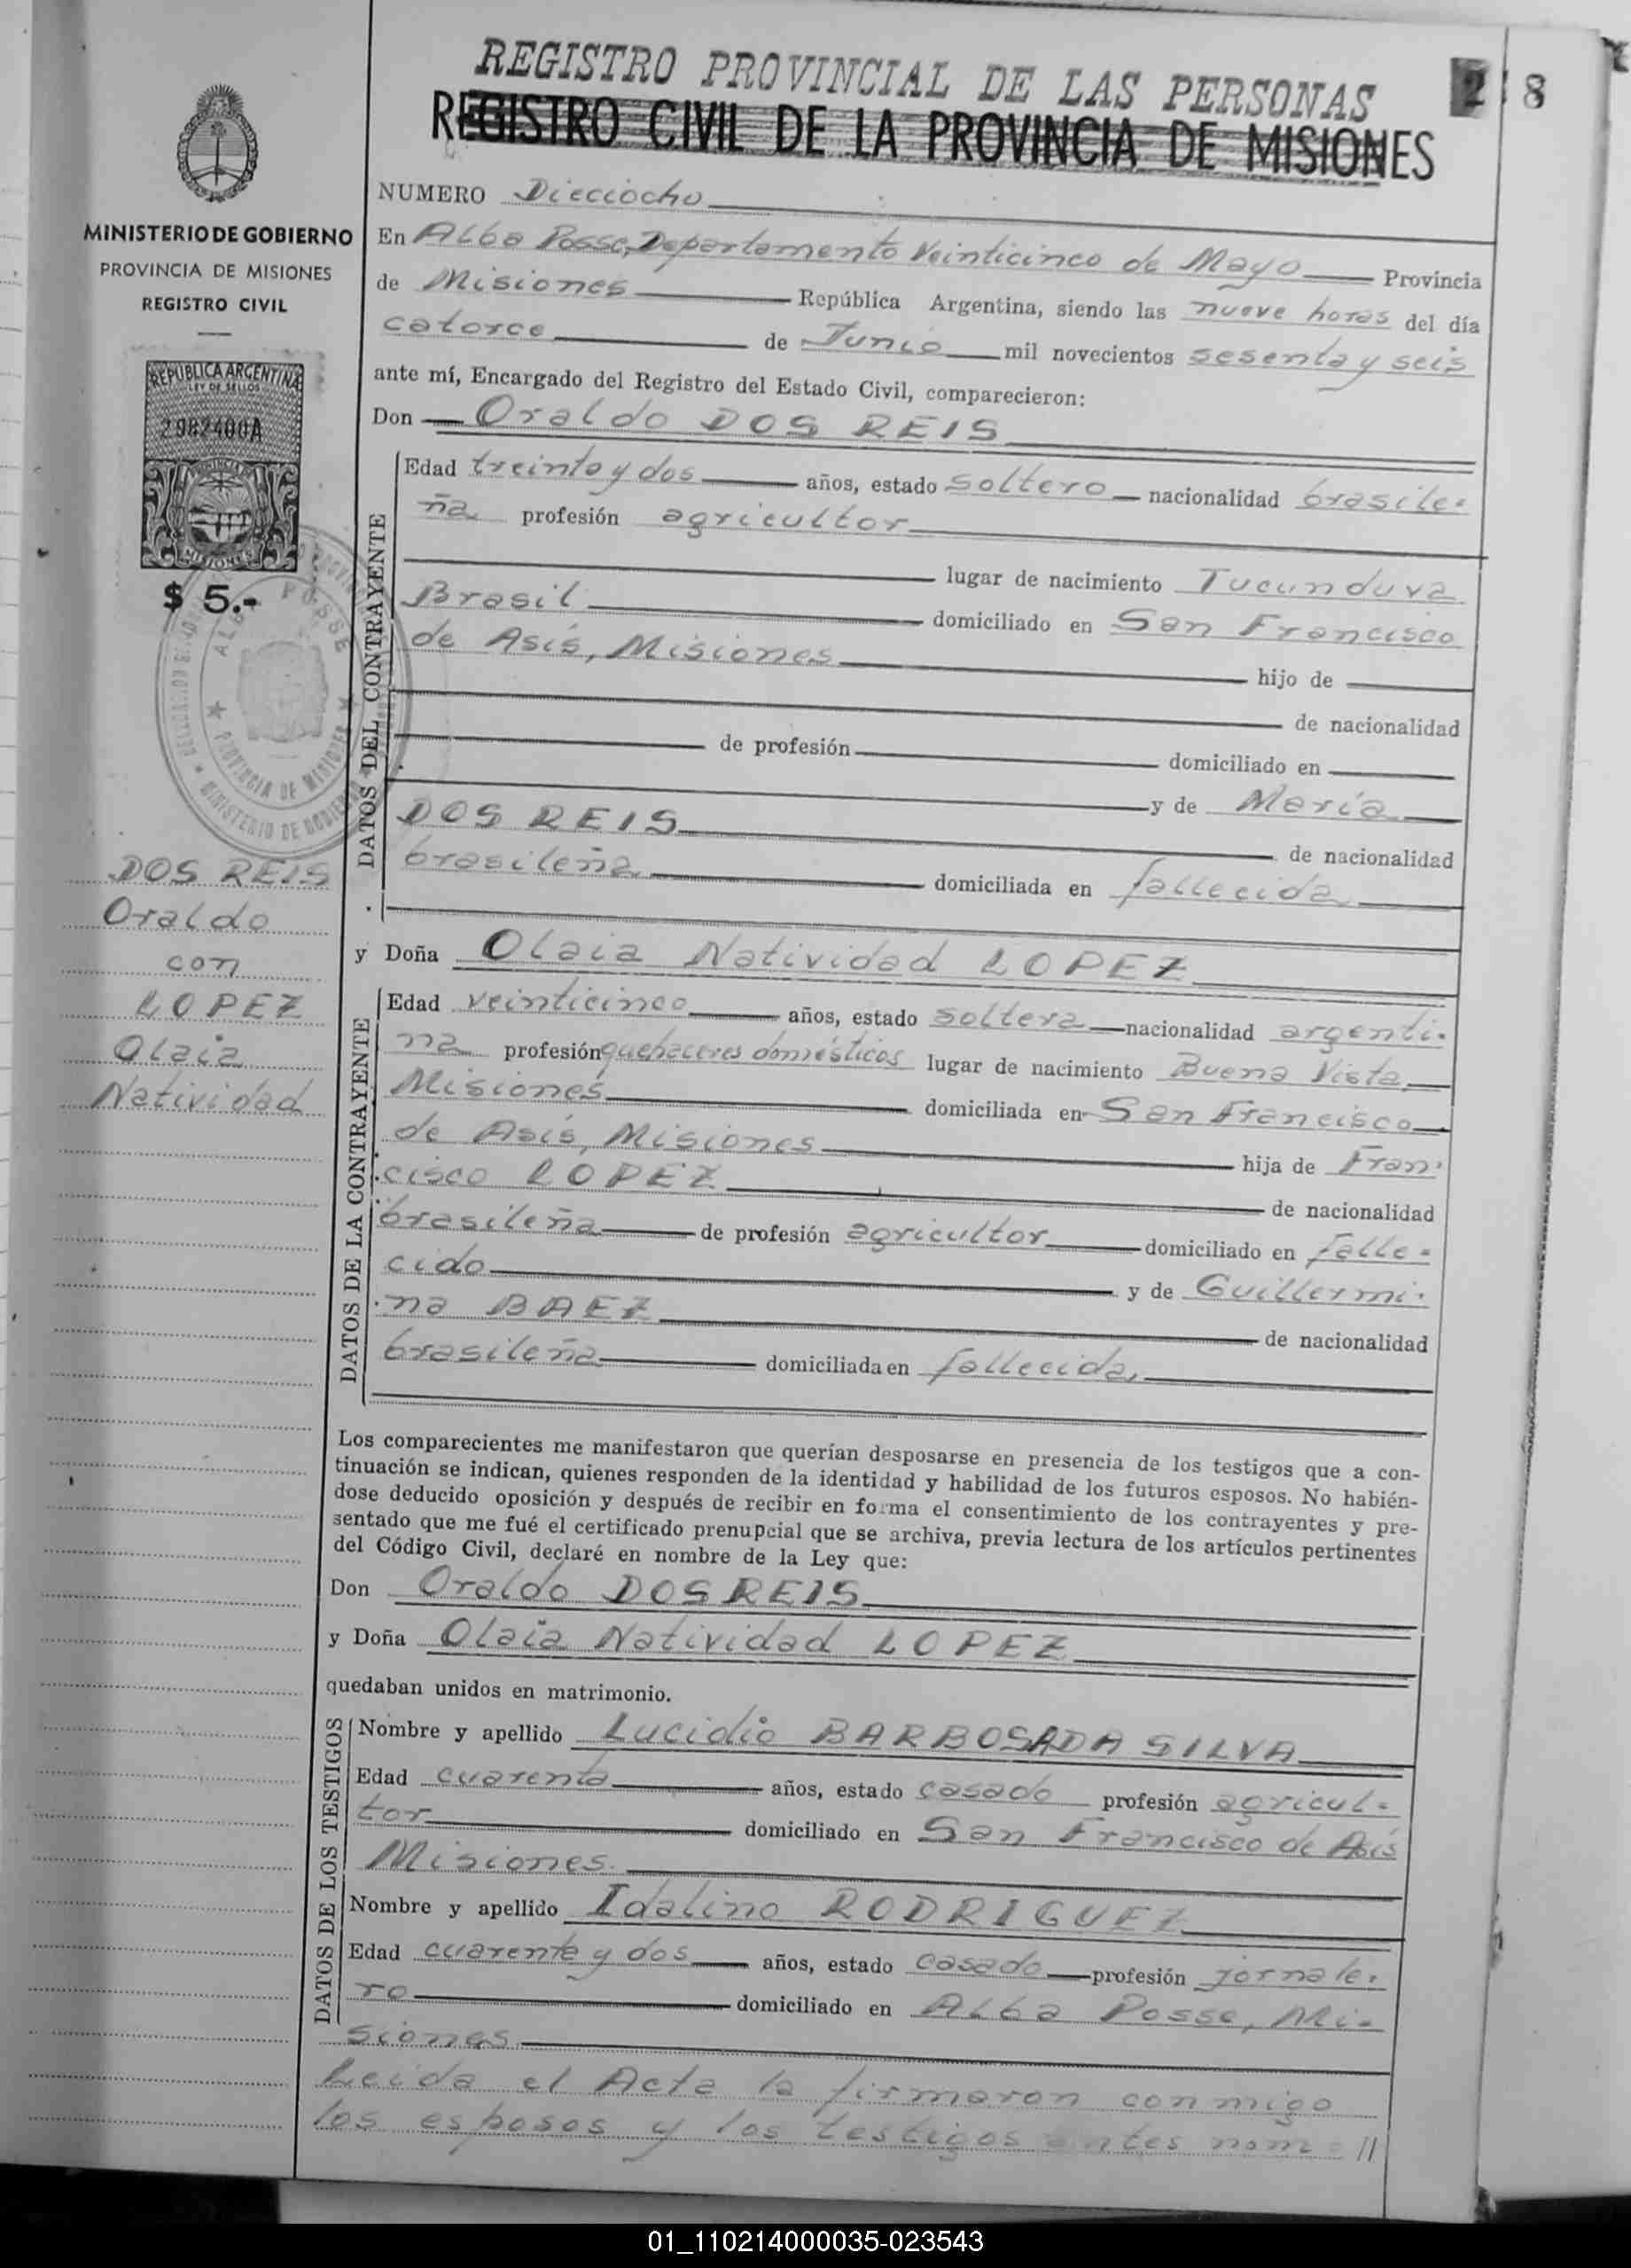 REGISTRO PROVINCIAL DE LAS PERSONAS
2 8
REGISTRO CIVIL DE LA PROVINCIA DE MISIONES
MINISTERIO DE GOBIERNO
PROVINCIA DE MISIONES
REGISTRO CIVIL
REPUBLICA ARGENTINA
LEY DE SELLOS
2982400A
MISIONES
$ 5.-
ALBA POSSE
PROVINCIA DE MISIONES
MINISTERIO DE GOBIERNO
DOS REIS
Oraldo
con
LOPEZ
Olaia
Natividad
NUMERO Dieciocho
En Alba Posse, Departamento Veinticinco de Mayo Provincia
de Misiones República Argentina, siendo las nueve horas del día
catorce de Junio mil novecientos sesenta y seis
ante mí, Encargado del Registro del Estado Civil, comparecieron:
Don Oraldo DOS REIS
DATOS DEL CONTRAYENTE
Edad treinta y dos años, estado soltero nacionalidad brasile-
ña profesión agricultor
lugar de nacimiento Tucunduva
Brasil domiciliado en San Francisco
de Asís, Misiones hijo de
de nacionalidad
de profesión domiciliado en
y de María
DOS REIS de nacionalidad
brasileña domiciliada en fallecida
y Doña Olaia Natividad LOPEZ
DATOS DE LA CONTRAYENTE
Edad veinticinco años, estado soltera nacionalidad argenti-
na profesión quehaceres domésticos lugar de nacimiento Buena Vista,
Misiones domiciliada en San Francisco
de Asís, Misiones hija de Fran-
cisco LOPEZ de nacionalidad
brasileña de profesión agricultor domiciliado en falle-
cido y de Guillermi-
na BAEZ de nacionalidad
brasileña domiciliada en fallecida,
Los comparecientes me manifestaron que querían desposarse en presencia de los testigos que a con-
tinuación se indican, quienes responden de la identidad y habilidad de los futuros esposos. No habién-
dose deducido oposición y después de recibir en forma el consentimiento de los contrayentes y pre-
sentado que me fué el certificado prenupcial que se archiva, previa lectura de los artículos pertinentes
del Código Civil, declaré en nombre de la Ley que:
Don Oraldo DOS REIS
y Doña Olaia Natividad LOPEZ
quedaban unidos en matrimonio.
DATOS DE LOS TESTIGOS
Nombre y apellido Lucidio BARBOSA DA SILVA
Edad cuarenta años, estado casado profesión agricul-
tor domiciliado en San Francisco de Asís
Misiones.
Nombre y apellido Idalino RODRIGUEZ
Edad cuarenta y dos años, estado casado profesión jornale-
ro domiciliado en Alba Posse, Mi-
siones
Leida el Acta la firmaron conmigo
los esposos y los testigos antes nom- //
01_110214000035-023543